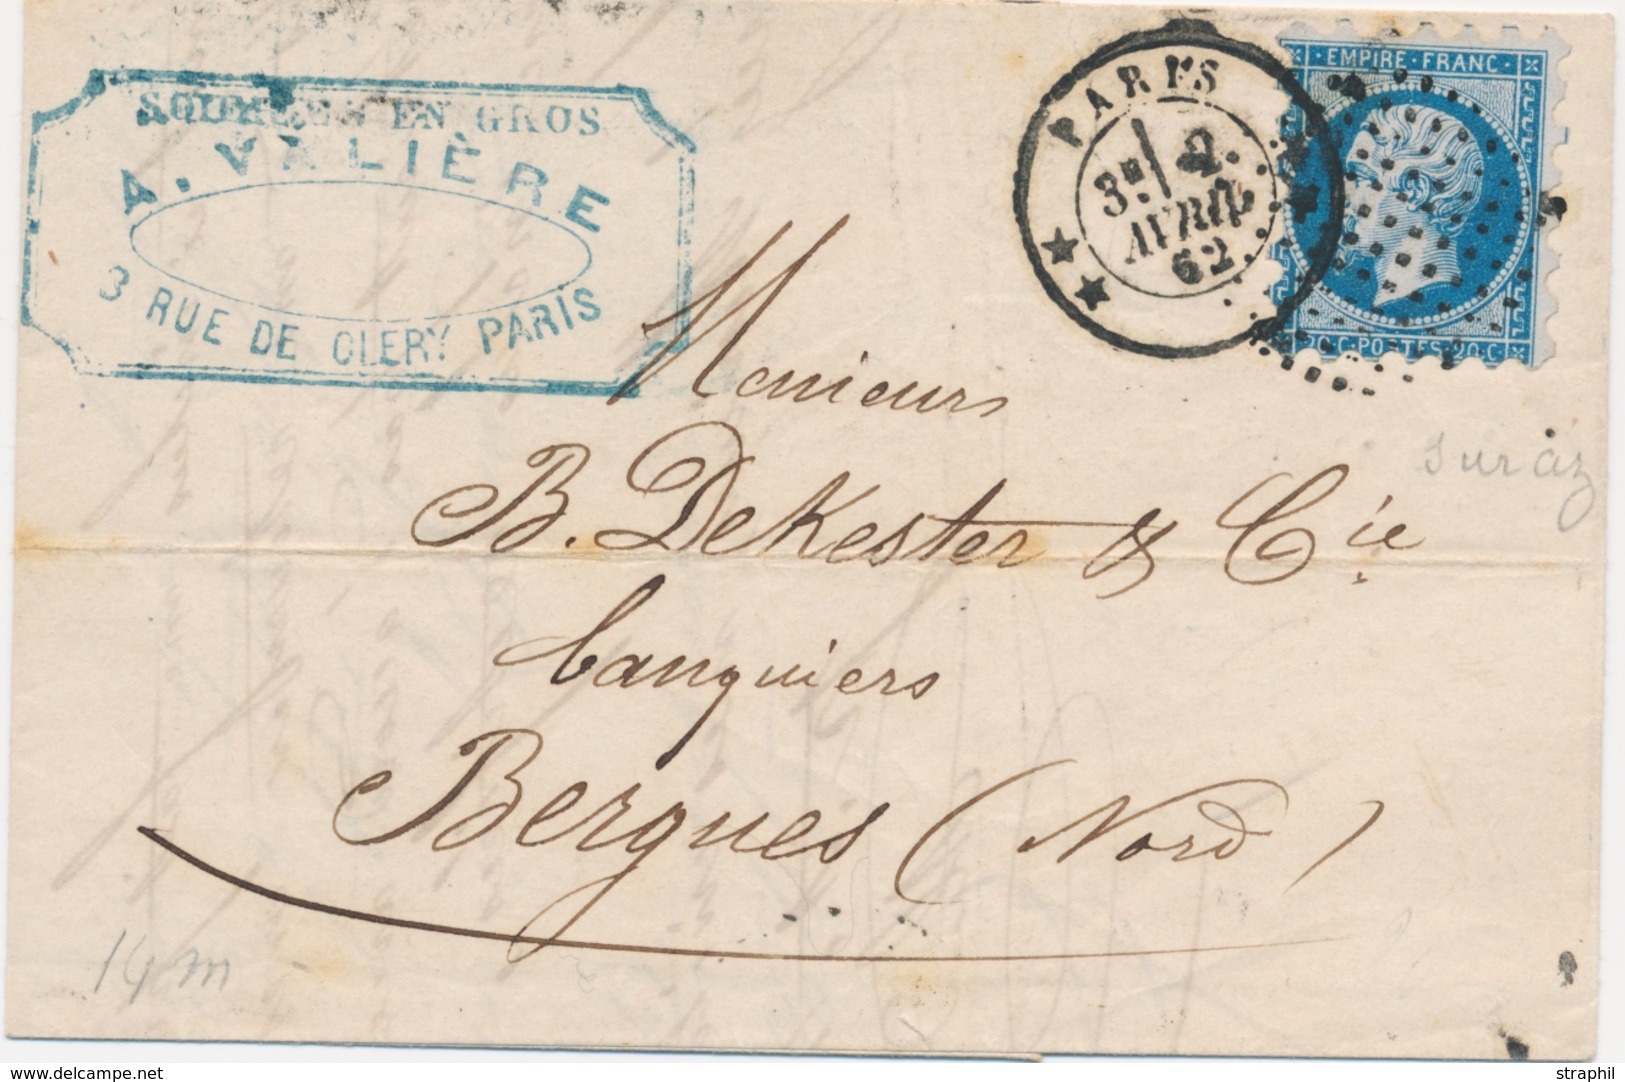 EN GROS
A. VALIÈRE
3 RUE DE CLERY PARIS
PARIS
3E 2
AVRIL
62
EMPIRE FRANC
20 C POSTES 20 C
Messieurs
B. DeKester & Cie
banquiers
Bergues (Nord)
www.delcampe.net
straphil